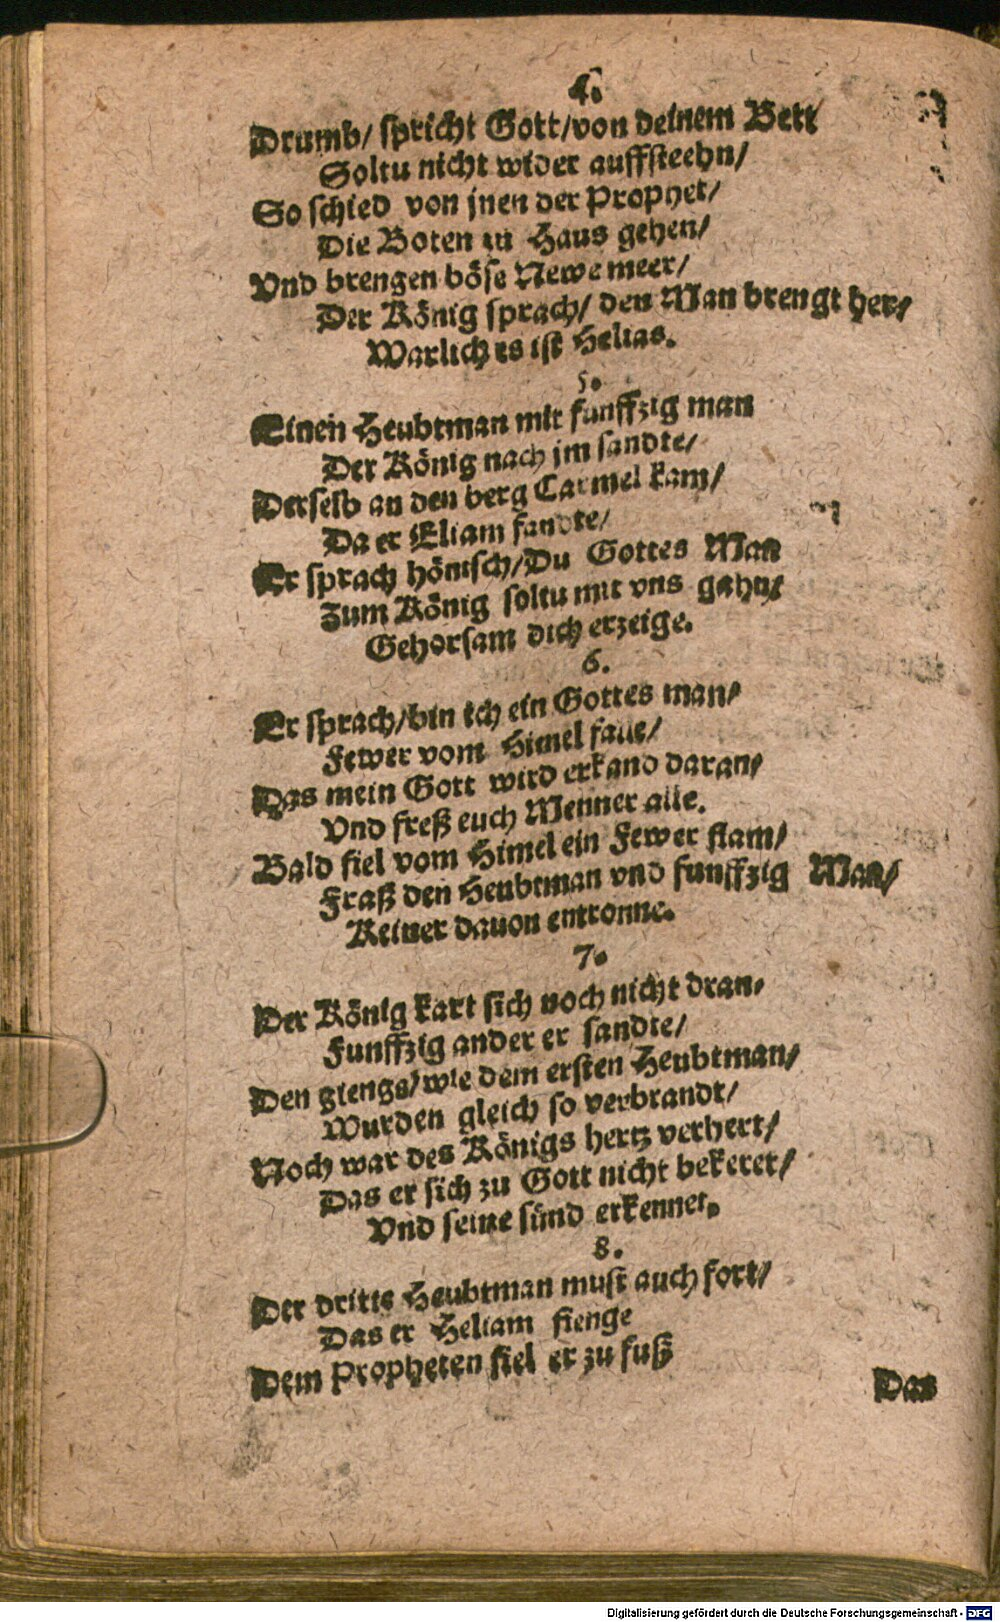 4.
Drumb/ spricht Gott/von deinem Bett
Soltu nicht wider auffsteehn/
So schied von jnen der Prophet/
Die Boten zu Haus gehen/
Vnd brengen böse Newe meer/
Der König sprach/ den Man brengt her/
Warlich es ist Helias.
5.
Einen Heubtman mit funffzig man
Der König nach jm sandte/
Derselb an den berg Carmel kam/
Da er Eliam fandte/
Er sprach hönisch/Du Gottes Man
Zum König soltu mit vns gahn/
Gehorsam dich erzeige.
6.
Er sprach/bin ich ein Gottes man/
Fewer vom Himel falle/
Das mein Gott wird erkand daran/
Vnd freß euch Menner alle.
Bald fiel vom Himel ein Fewer flam/
Fraß den Heubtman vnd funffzig Man/
Keiner dauon entronne.
7.
Der König kart sich noch nicht dran/
Funffzig ander er sandte/
Den giengs/wie dem ersten Heubtman/
Wurden gleich so verbrandt/
Noch war des Königs hertz verhert/
Das er sich zu Gott nicht bekeret/
Vnd seine sünd erkennet.
8.
Der dritte Heubtman must auch fort/
Das er Heliam fienge
Dem Propheten fiel er zu fuß
Das
Digitalisierung gefördert durch die Deutsche Forschungsgemeinschaft - DFG